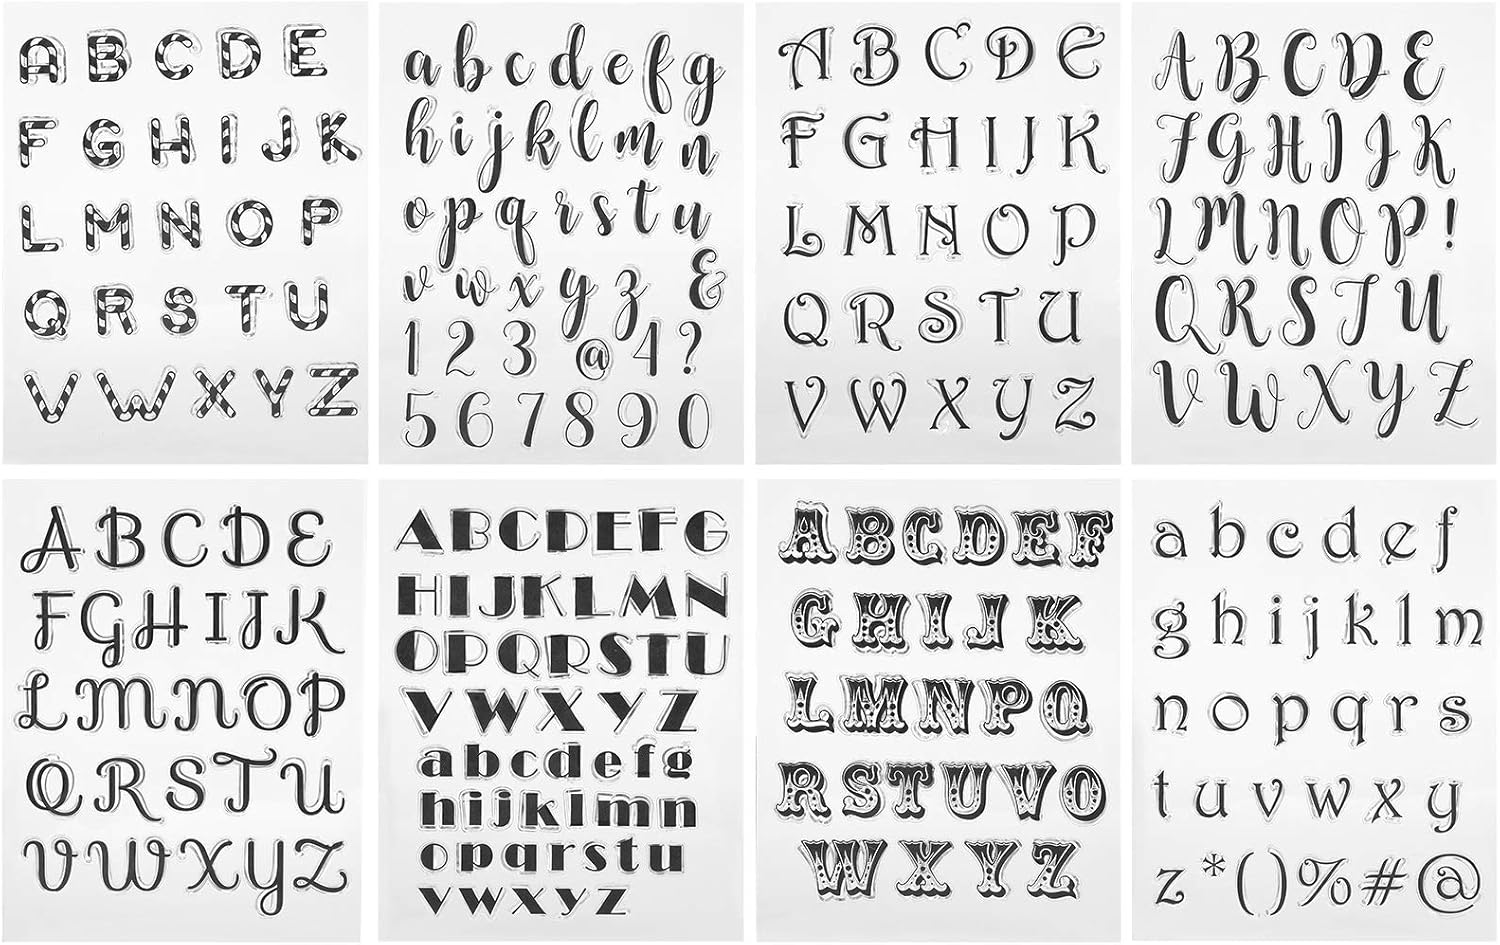 A B C D E
F G H I J K
L M N O P
Q R S T U
V W X Y Z
a b c d e f g
h i j k l m n
o p q r s t u
v w x y z &
1 2 3 @ 4 ?
5 6 7 8 9 0
A B C D E
F G H I J K
L M N O P
Q R S T U
V W X Y Z
A B C D E
F G H I J K
L M N O P !
Q R S T U
V W X Y Z
A B C D E
F G H I J K
L M N O P
Q R S T U
V W X Y Z
A B C D E F G
H I J K L M N
O P Q R S T U
V W X Y Z
a b c d e f g
h i j k l m n
o p q r s t u
v w x y z
A B C D E F
G H I J K
L M N P Q
R S T U V O
W X Y Z
a b c d e f
g h i j k l m
n o p q r s
t u v w x y
z * ( ) % # @